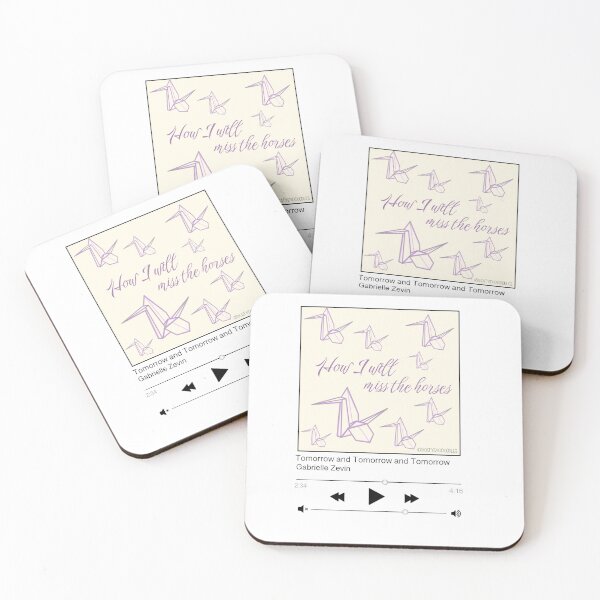 How I will
miss the horses
morrow
How I will
miss the horses
Tomorrow and Tomorrow and Tomorrow
Gabrielle Zevin
How I will
miss the horses
Tomorrow and Tomorrow and Tomo
Gabrielle Zevin
2:34
How I will
miss the horses
Tomorrow and Tomorrow and Tomorrow
Gabrielle Zevin
2:34 4:16